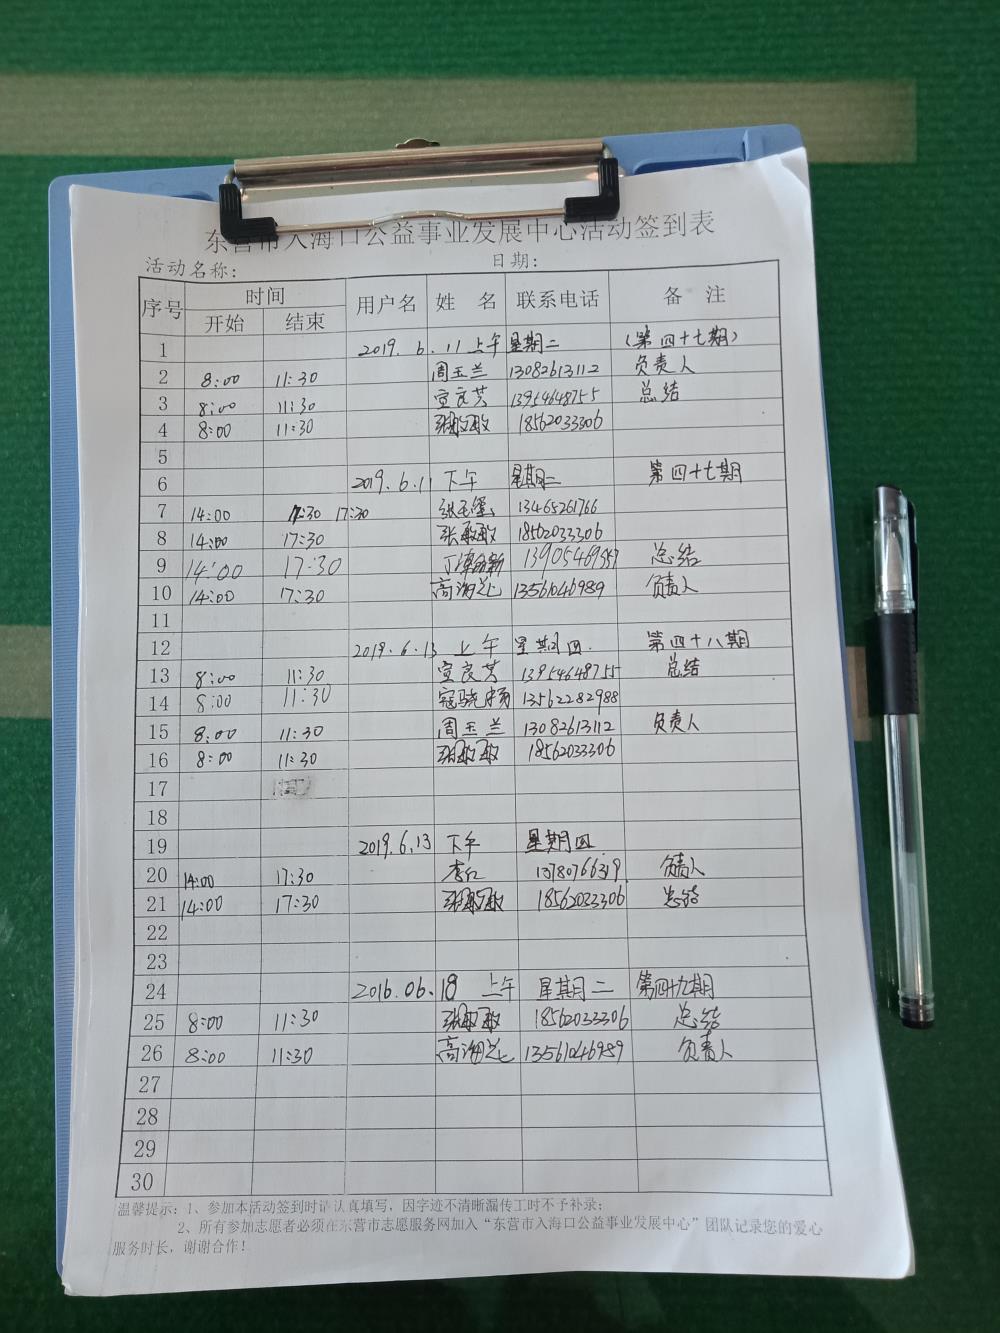 东营市入海口公益事业发展中心活动签到表
活动名称: 日期:
序号 时间 用户名 姓 名 联系电话 备 注
开始 结束
1 2019.6.11上午 星期二 (第四十七期)
2 8:00 11:30 周玉兰 13082613112 负责人
3 8:00 11:30 宣良芹 13954648755 总结
4 8:00 11:30 张敏敏 18562033306
5
6 2019.6.11 下午 星期二 第四十七期
7 14:00 17:30 13465261766
8 14:00 17:30 张敏敏 18562033306
9 14:00 17:30 总结
10 14:00 17:30 高海芝 13561046989 负责人
11
12 2019.6.13 上午 星期四. 第四十八期
13 8:00 11:30 宣良芹 13954648755 总结
14 8:00 11:30 寇骁扬 13562282988
15 8:00 11:30 周玉兰 13082613112 负责人
16 8:00 11:30 张敏敏 18562033306
17
18
19 2019.6.13 下午 星期四
20 14:00 17:30 李红 负责人
21 14:00 17:30 张敏敏 18562033306 总结
22
23
24 2016.06.18 上午 星期二 第四十九期
25 8:00 11:30 张敏敏 18562033306 总结
26 8:00 11:30 高海芝 13561046989 负责人
27
28
29
30
温馨提示:1、参加本活动签到时请认真填写,因字迹不清晰漏传工时不予补录;
2、所有参加志愿者必须在东营市志愿服务网加入“东营市入海口公益事业发展中心”团队记录您的爱心
服务时长,谢谢合作!